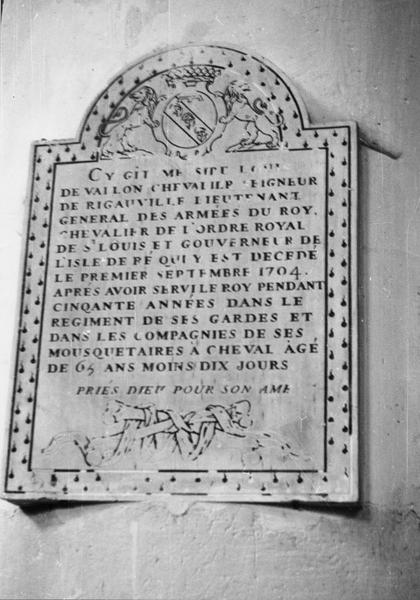 CY GIT MESSIRE LOUIS
DE VAILLON CHEVALIER SEIGNEUR
DE RIGAUVILLE LIEUTENANT
GENERAL DES ARMÉES DU ROY,
CHEVALIER DE L'ORDRE ROYAL
DE St LOUIS ET GOUVERNEUR DE
L'ISLE DE RÉ QUI Y EST DECEDÉ
LE PREMIER SEPTEMBRE 1704.
APRÉS AVOIR SERVI LE ROY PENDANT
CINQANTE ANNÉES DANS LE
REGIMENT DE SES GARDES ET
DANS LES COMPAGNIES DE SES
MOUSQUETAIRES À CHEVAL ÂGÉ
DE 65 ANS MOINS DIX JOURS
PRIÉS DIEU POUR SON AME